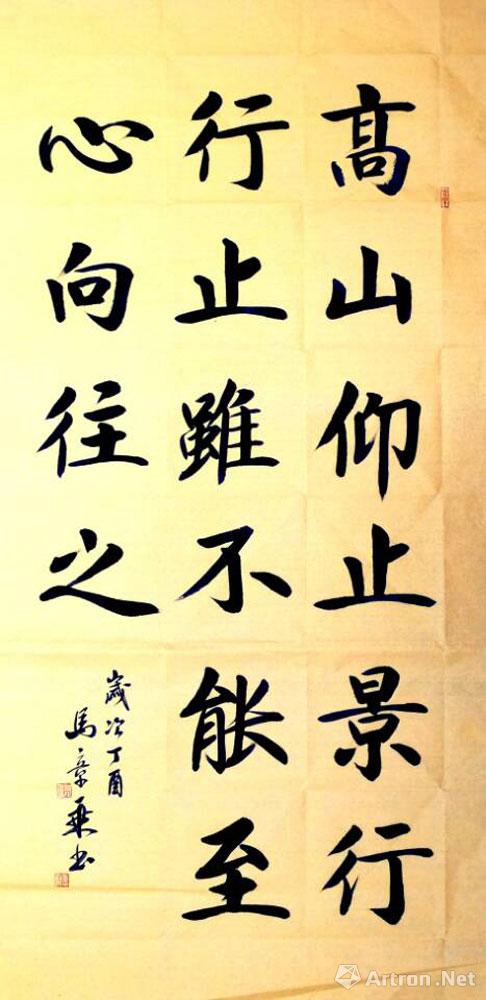 高山仰止景行
行止雖不能至
心向往之
歲次丁酉
馬章乘書
Artron.Net